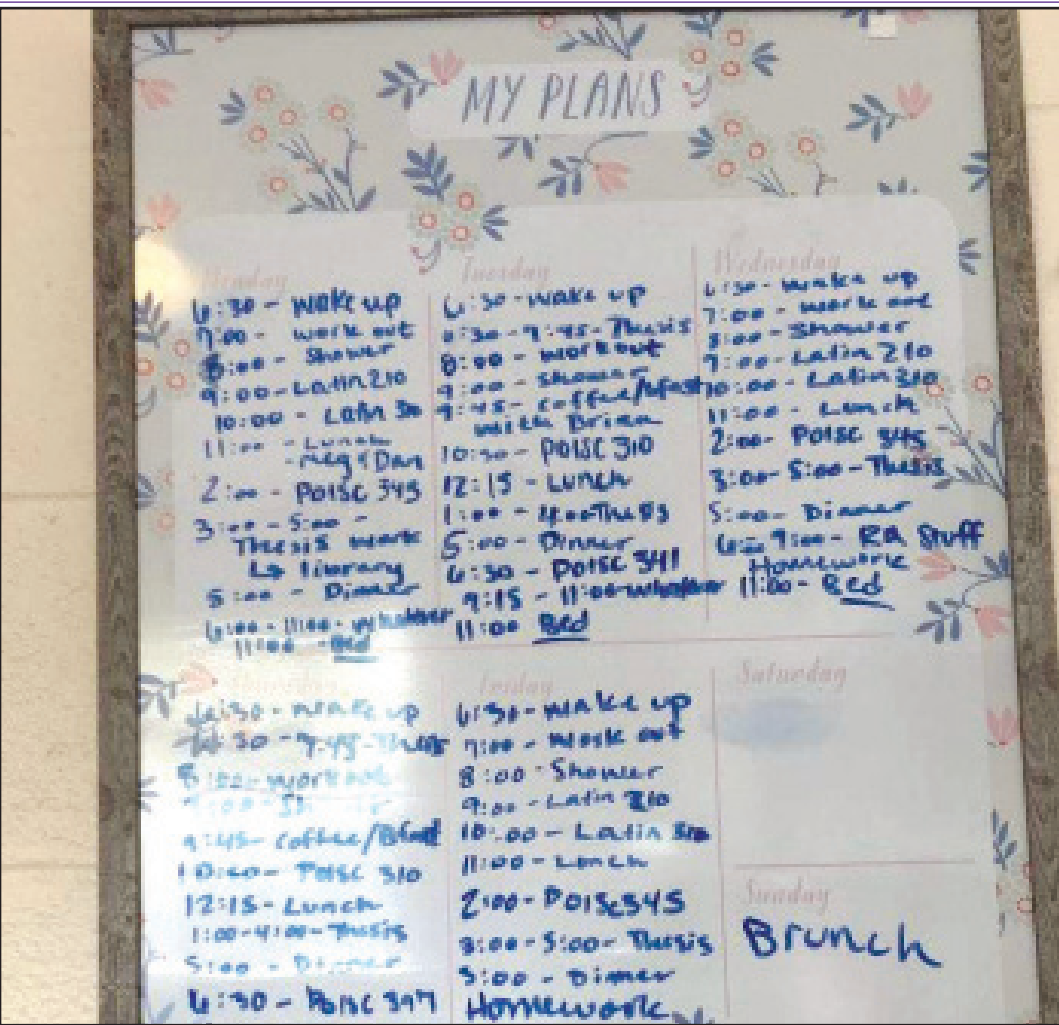 MY PLANS
Monday
6:30 - wake up
7:00 - work out
8:00 - Shower
9:00 - Latin 210
10:00 - Latin
11:00 - Lunch
- Meg & Dan
2:00 - POISC 345
3:00 - 5:00 -
Thesis work
↳ library
5:00 - Dinner
6:00 - 11:00 - whatever
11:00 - Bed
Tuesday
6:30 - wake up
6:30 - 7:45 - Thesis
8:00 - workout
9:00 - Shower
9:45 - coffee/bfast
with Brian
10:50 - POISC 310
12:15 - Lunch
1:00 - 4:00 Thesis
5:00 - Dinner
6:30 - POISC 341
9:15 - 11:00 - whatever
11:00 Bed
Wednesday
6:30 - wake up
7:00 - work out
8:00 - Shower
9:00 - Latin 210
10:00 - Latin 310
11:00 - Lunch
2:00 - POISC 345
3:00 - 5:00 - Thesis
5:00 - Dinner
9:00 - RA Stuff
Homework
11:00 - Bed
Thursday
6:30 - wake up
6:30 - 7:45 - Thesis
8:00 - workout
9:00 -
9:45 - coffee/Bfast
POISC 310
12:15 - Lunch
1:00 - 4:00 - Thesis
5:00 - Dinner
6:30 - POISC
Friday
6:30 - wake up
7:00 - work out
8:00 - Shower
9:00 - Latin 210
10:00 - Latin 310
11:00 - Lunch
2:00 - POISC 345
3:00 - 5:00 - Thesis
5:00 - Dinner
Homework
Saturday
Sunday
Brunch